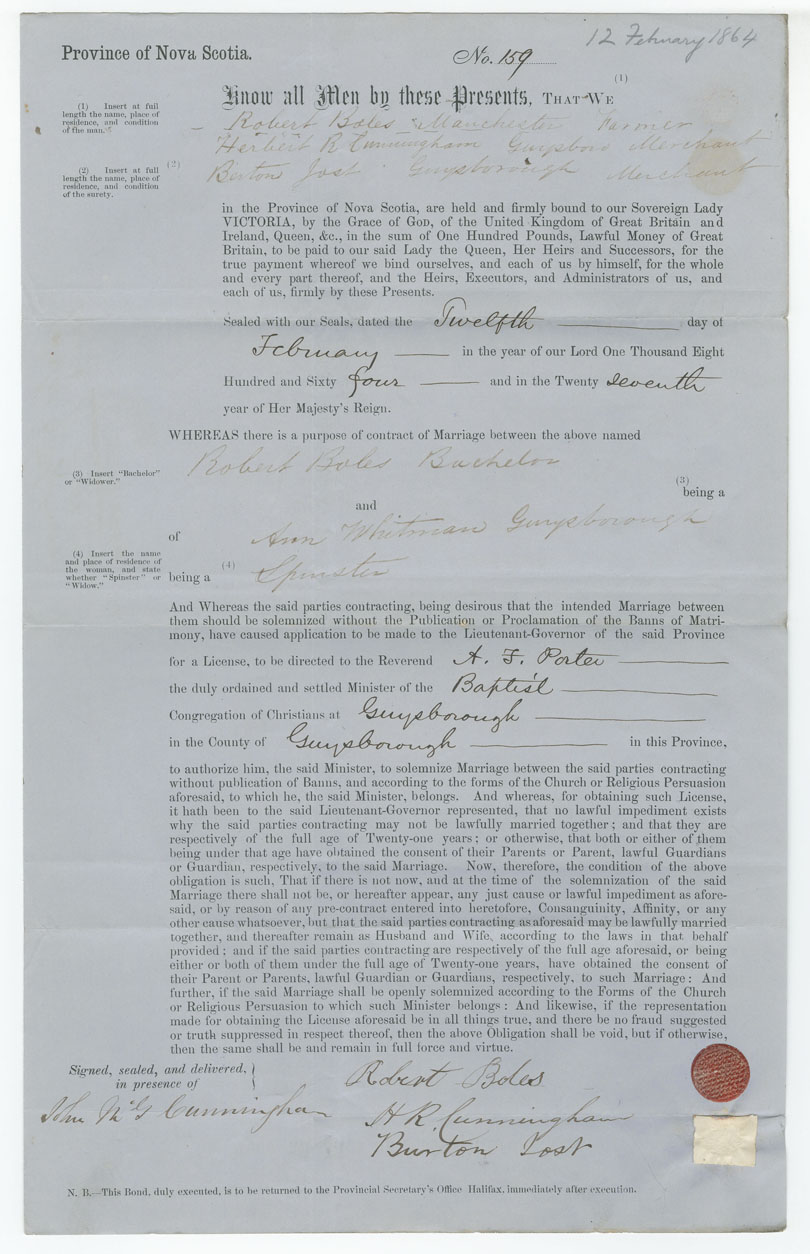 12 February 1864
Province of Nova Scotia.
No. 159
Know all Men by these Presents, THAT WE (1)
(1) Insert at full
length the name, place of
residence, and condition
of the man.
Robert Boles Manchester Farmer
Herbert R Cunningham Guysboro Merchant
(2) Insert at full
length the name, place of
residence, and condition
of the surety.
(2) Burton Jost Guysborough Merchant
in the Province of Nova Scotia, are held and firmly bound to our Sovereign Lady
VICTORIA, by the Grace of GOD, of the United Kingdom of Great Britain and
Ireland, Queen, &c., in the sum of One Hundred Pounds, Lawful Money of Great
Britain, to be paid to our said Lady the Queen, Her Heirs and Successors, for the
true payment whereof we bind ourselves, and each of us by himself, for the whole
and every part thereof, and the Heirs, Executors, and Administrators of us, and
each of us, firmly by these Presents.
Sealed with our Seals, dated the Twelfth day of
February in the year of our Lord One Thousand Eight
Hundred and Sixty four and in the Twenty seventh
year of Her Majesty's Reign.
WHEREAS there is a purpose of contract of Marriage between the above named
Robert Boles Bachelor
(3) Insert "Bachelor"
or "Widower."
(3)
being a
and
of Ann Whitman Guysborough
(4) Insert the name
and place of residence of
the woman, and state
whether "Spinster" or
"Widow."
being a (4) Spinster
And Whereas the said parties contracting, being desirous that the intended Marriage between
them should be solemnized without the Publication or Proclamation of the Banns of Matri-
mony, have caused application to be made to the Lieutenant-Governor of the said Province
for a License, to be directed to the Reverend A. F. Porter
the duly ordained and settled Minister of the Baptist
Congregation of Christians at Guysborough
in the County of Guysborough in this Province,
to authorize him, the said Minister, to solemnize Marriage between the said parties contracting
without publication of Banns, and according to the forms of the Church or Religious Persuasion
aforesaid, to which he, the said Minister, belongs. And whereas, for obtaining such License,
it hath been to the said Lieutenant-Governor represented, that no lawful impediment exists
why the said parties contracting may not be lawfully married together; and that they are
respectively of the full age of Twenty-one years; or otherwise, that both or either of them
being under that age have obtained the consent of their Parents or Parent, lawful Guardians
or Guardian, respectively, to the said Marriage. Now, therefore, the condition of the above
obligation is such, That if there is not now, and at the time of the solemnization of the said
Marriage there shall not be, or hereafter appear, any just cause or lawful impediment as afore-
said, or by reason of any pre-contract entered into heretofore, Consanguinity, Affinity, or any
other cause whatsoever, but that the said parties contracting as aforesaid may be lawfully married
together, and thereafter remain as Husband and Wife, according to the laws in that behalf
provided; and if the said parties contracting are respectively of the full age aforesaid, or being
either or both of them under the full age of Twenty-one years, have obtained the consent of
their Parent or Parents, lawful Guardian or Guardians, respectively, to such Marriage: And
further, if the said Marriage shall be openly solemnized according to the Forms of the Church
or Religious Persuasion to which such Minister belongs: And likewise, if the representation
made for obtaining the License aforesaid be in all things true, and there be no fraud suggested
or truth suppressed in respect thereof, then the above Obligation shall be void, but if otherwise,
then the same shall be and remain in full force and virtue.
Signed, sealed, and delivered,
in presence of
Robert Boles
John McG Cunningham
H R. Cunningham
Burton Jost
N. B.—This Bond, duly executed, is to be returned to the Provincial Secretary's Office Halifax, immediately after execution.